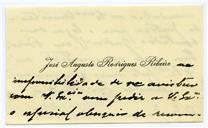 José Augusto Rodrigues Ribeiro na
impossibilidade de se avistar
com V. Exª, vem pedir a V. Exª
o especial obsequio de